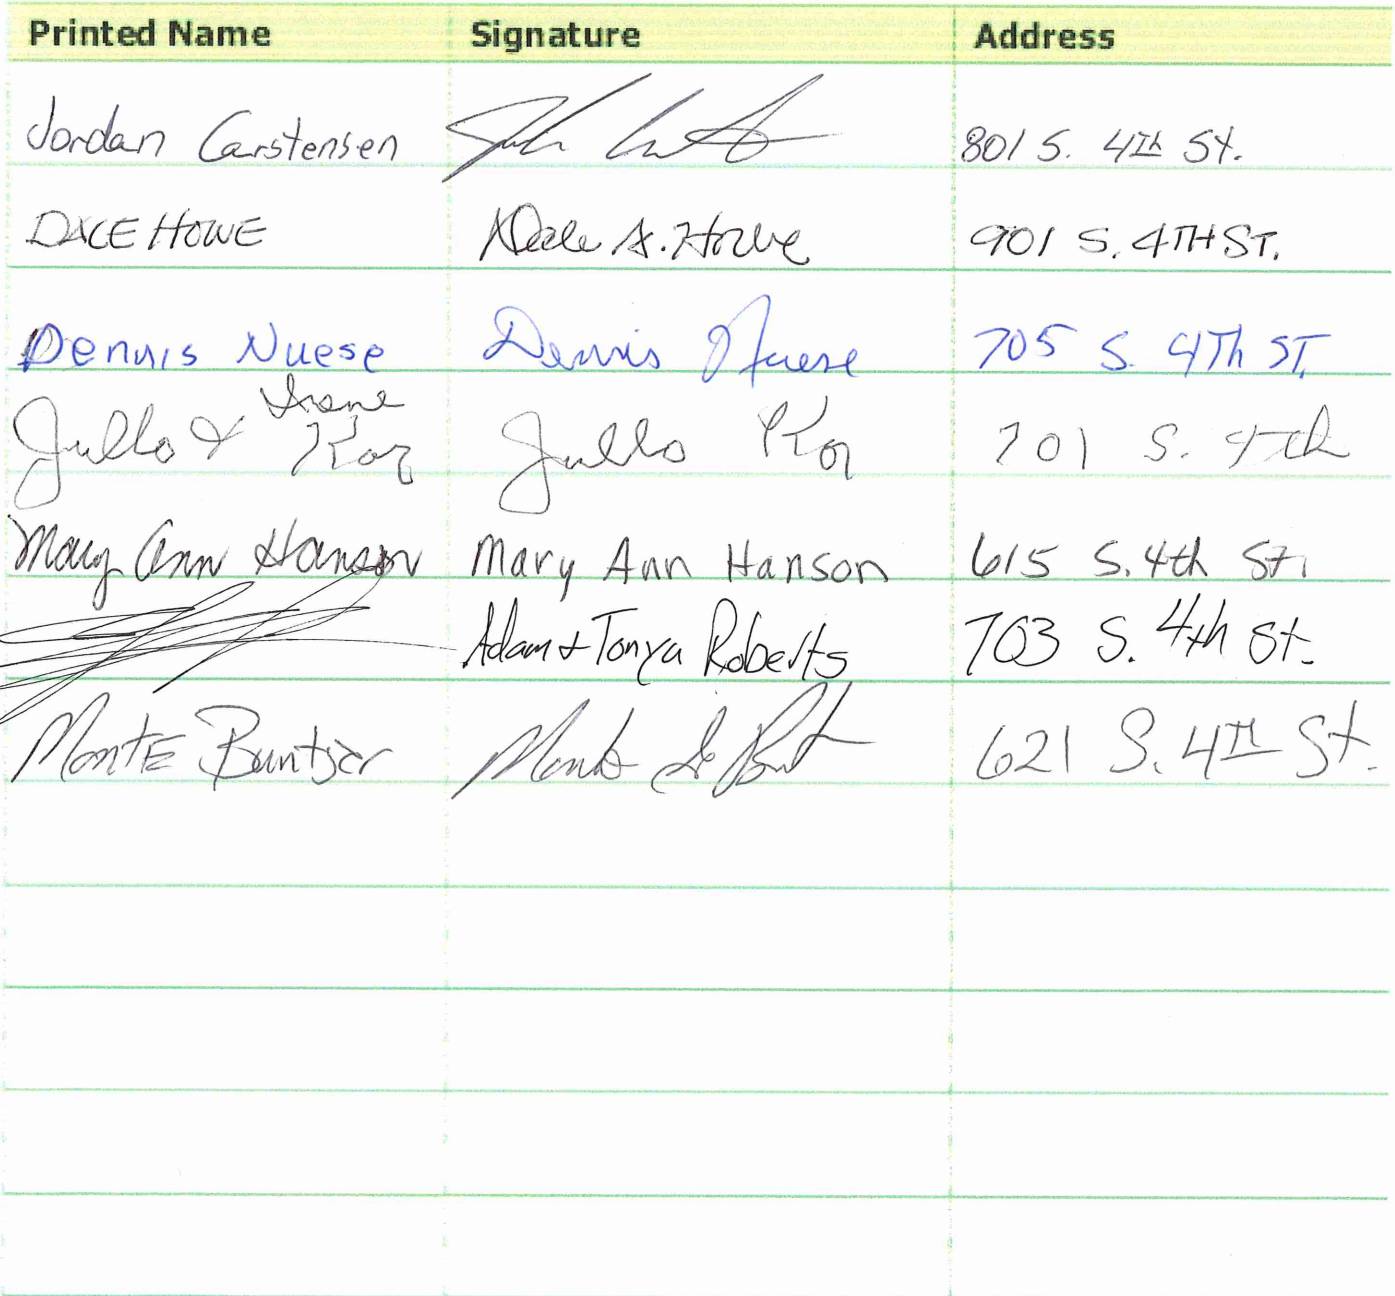 Printed Name Signature Address
Jordan Carstensen 801 S. 4th St.
DALE HOWE Dale A. Howe 901 S. 4TH ST.
Dennis Nuese Dennis Nuese 705 S. 4Th ST.
Irene
Jullo & Kor Jullo Kor 701 S. 4th
Mary Ann Hanson Mary Ann Hanson 615 S. 4th St.
Adam + Tonya Roberts 703 S. 4th St.
Monte Buntjer 621 S. 4TH St.